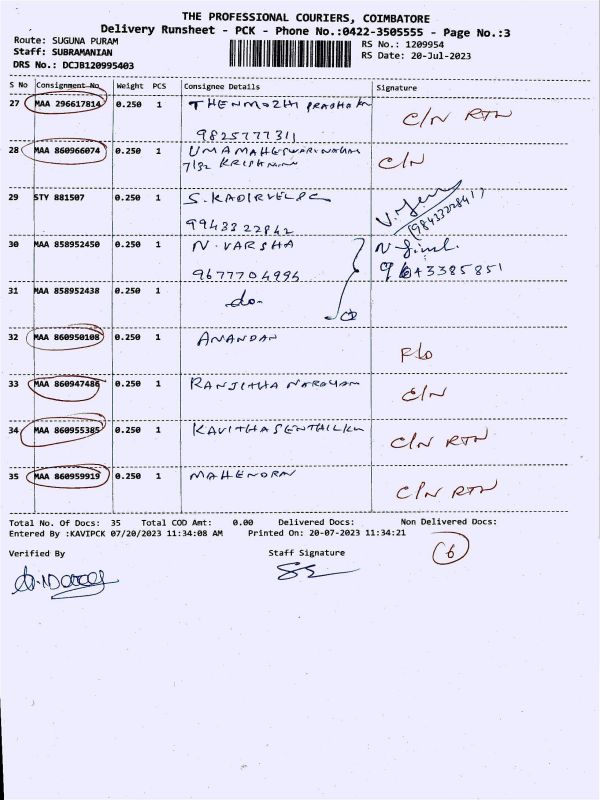 THE PROFESSIONAL COURIERS, COIMBATORE
Delivery Runsheet - PCK - Phone No.:0422-3505555 - Page No.:3
Route: SUGUNA PURAM
RS No.: 1209954
Staff: SUBRAMANIAN
RS Date: 20-Jul-2023
DRS No.: DCJB120995403
S No Consignment No Weight PCS Consignee Details Signature
27 MAA 296617814 0.250 1 THENMOZHI PRABHAKAR C/N RTN
9825777311
28 MAA 860966074 0.250 1 UMAMAHESWARI C/N
7/32 KRISHNAN
29 STY 881507 0.250 1 S. KADIRVEL
9943322842 (9843322841)
30 MAA 858952450 0.250 1 N. VARSHA
9677704994 9643385851
31 MAA 858952438 0.250 1 do.
32 MAA 860950108 0.250 1 ANANDAN
33 MAA 860947486 0.250 1 RANJITHA NARAYANAN C/N
34 MAA 860955385 0.250 1 KAVITHASENTHILKU C/N RTN
35 MAA 860959919 0.250 1 MAHENDRAN C/N RTN
Total No. Of Docs: 35 Total COD Amt: 0.00 Delivered Docs: Non Delivered Docs:
Entered By :KAVIPCK 07/20/2023 11:34:08 AM Printed On: 20-07-2023 11:34:21
6
Verified By Staff Signature